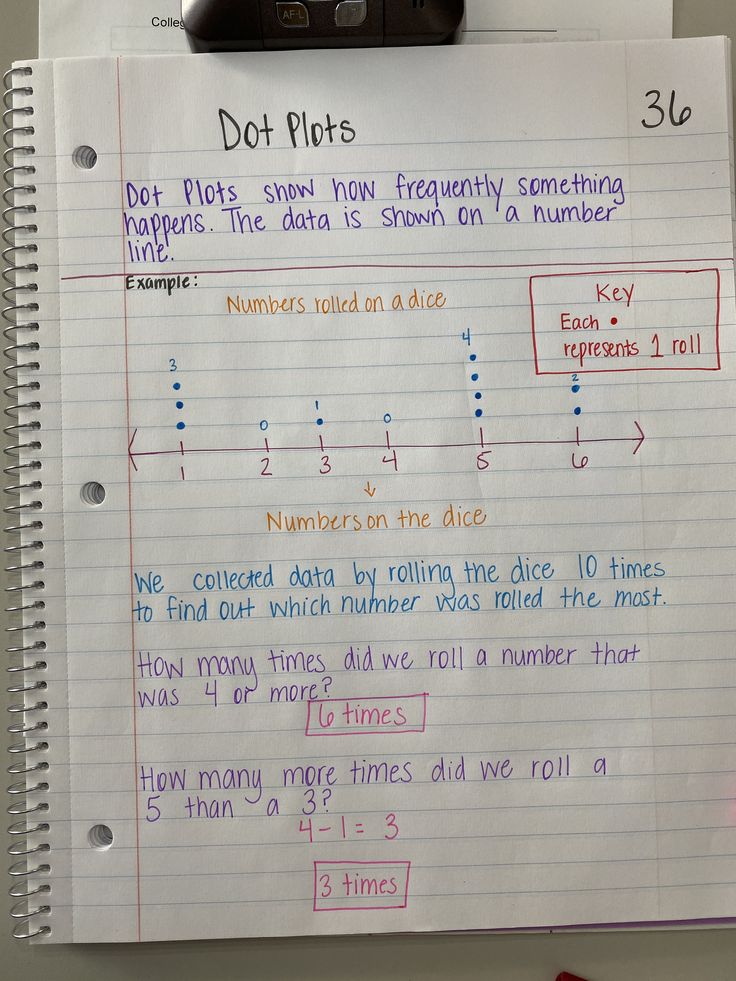 Colleg
AF-L
Dot Plots
36
Dot Plots show how frequently something
happens. The data is shown on a number
line.
Example:
Numbers rolled on a dice
Key
Each •
represents 1 roll
3 0 1 0 4 2
1 2 3 4 5 6
Numbers on the dice
We collected data by rolling the dice 10 times
to find out which number was rolled the most.
How many times did we roll a number that
was 4 or more?
6 times
How many more times did we roll a
5 than a 3?
4-1= 3
3 times